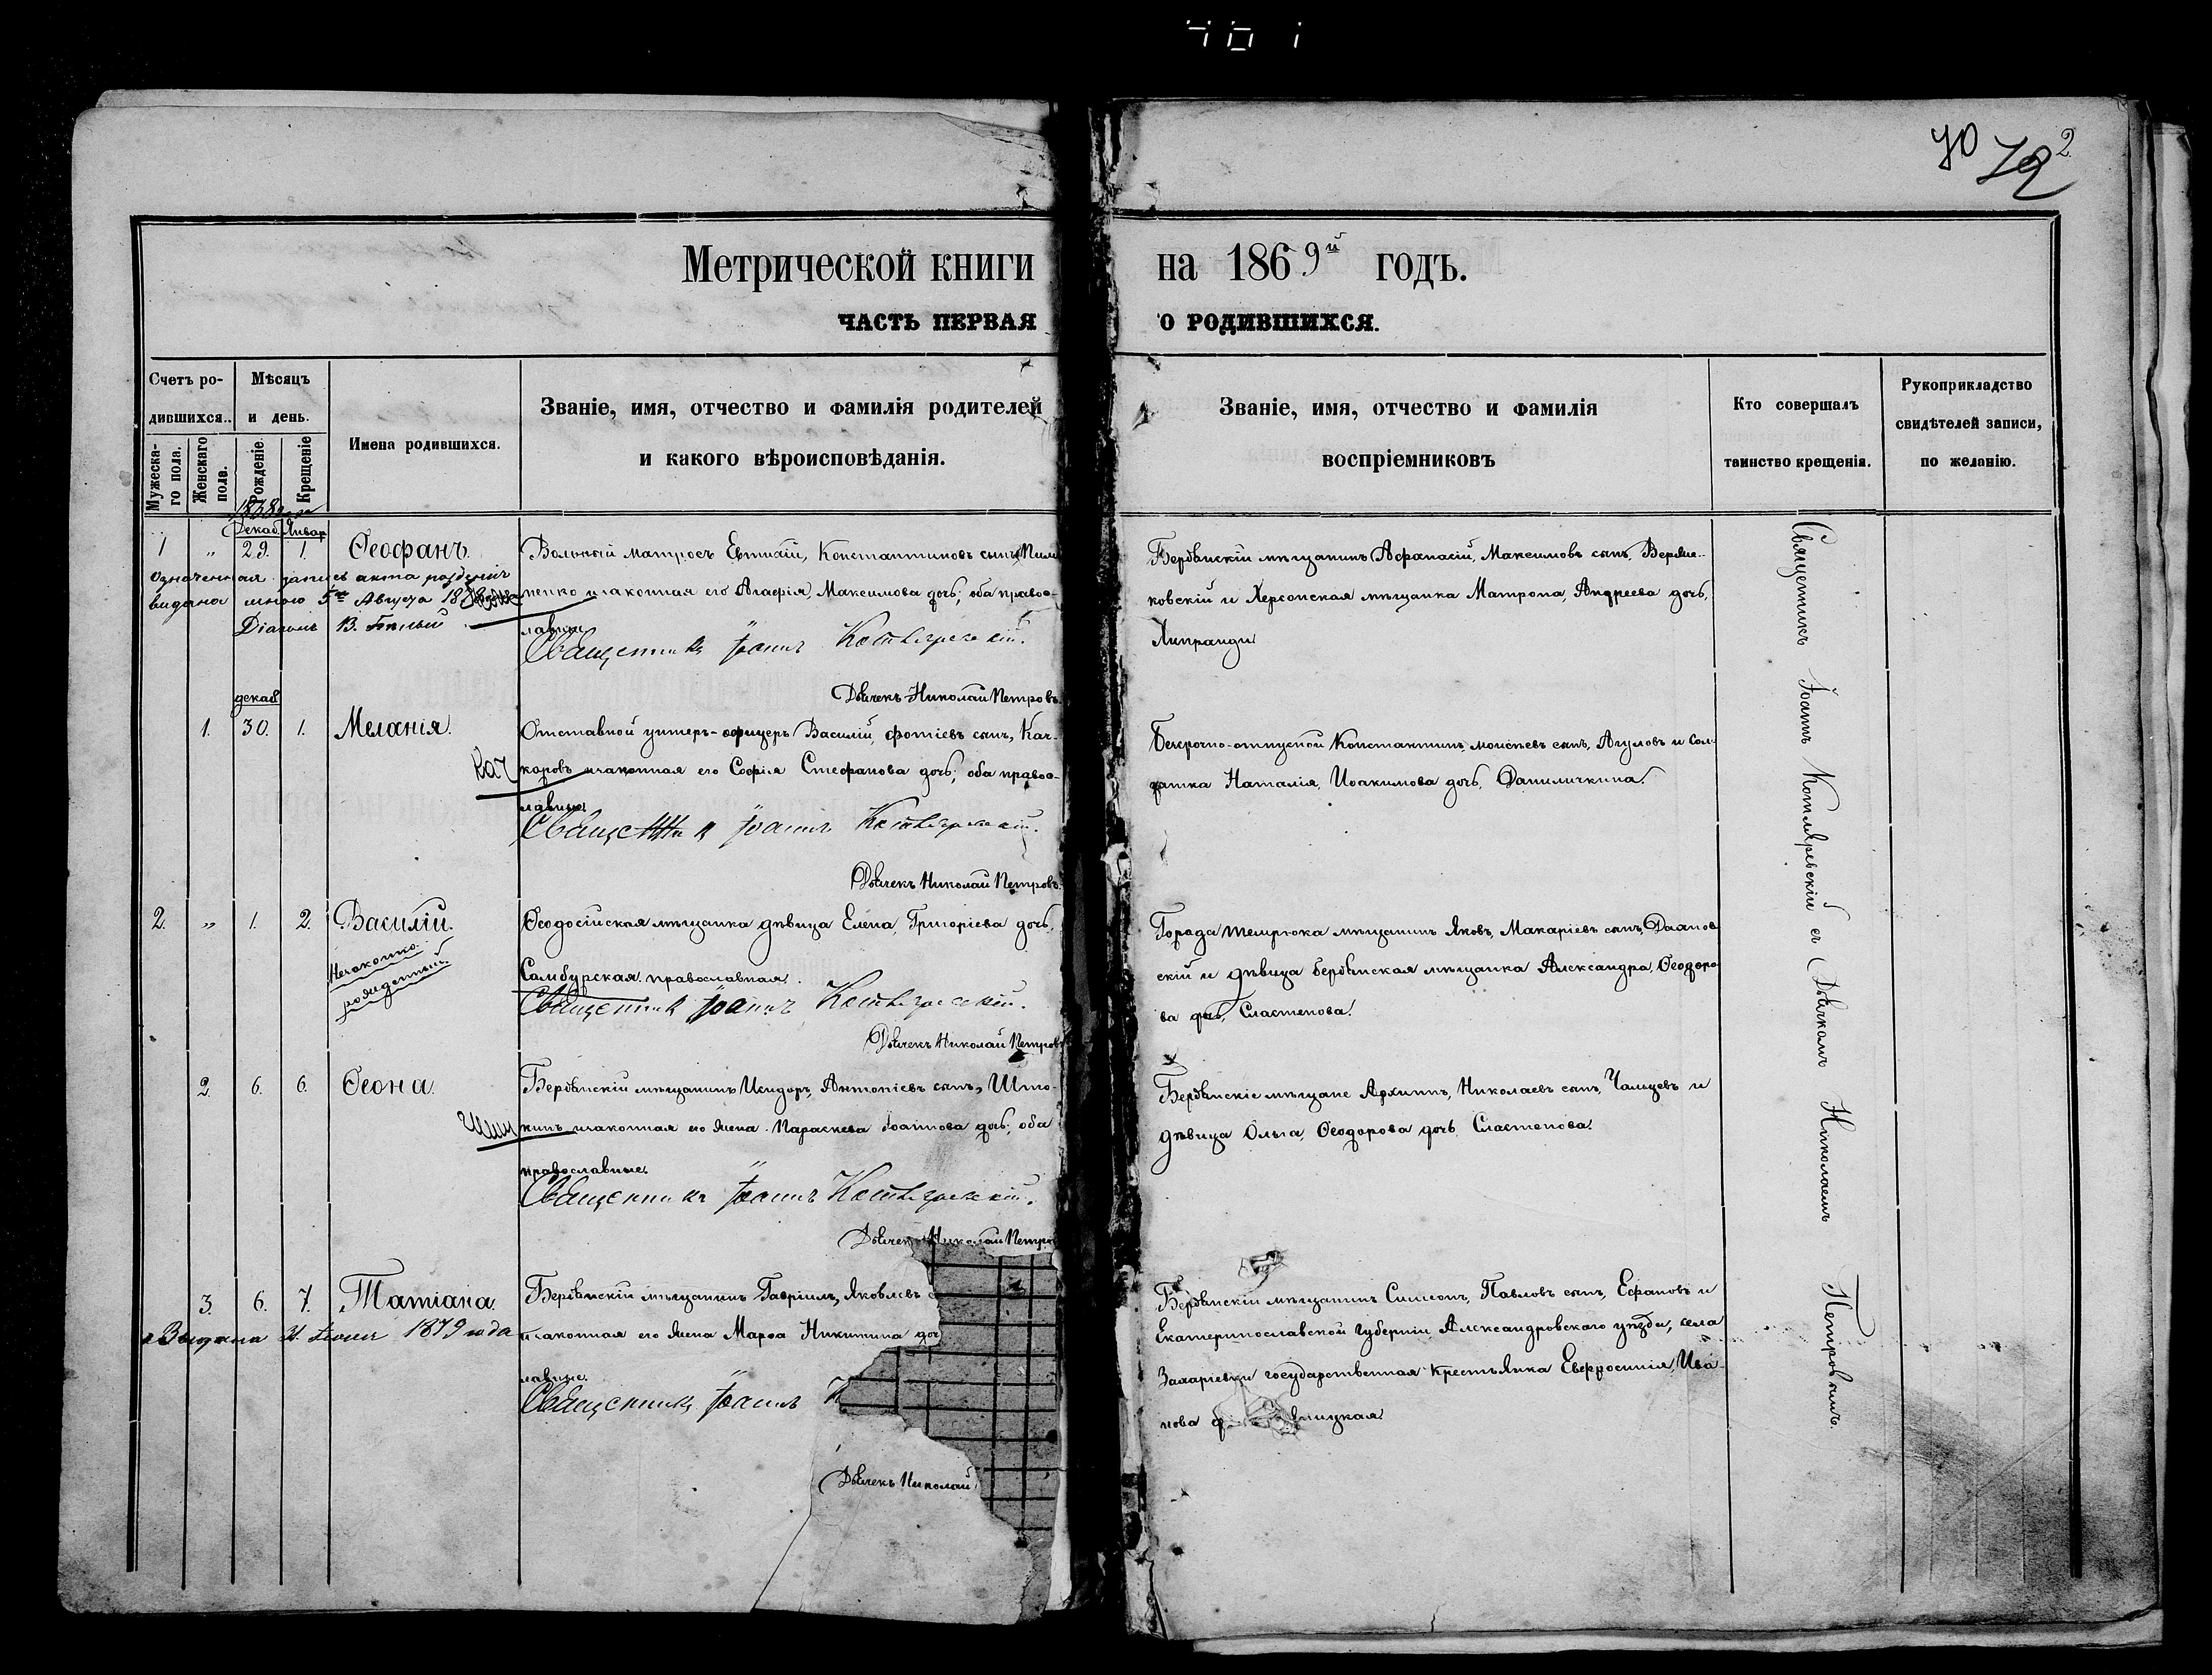 70 72 2.
Метрической книги на 1869й годъ.
ЧАСТЬ ПЕРВАЯ О РОДИВШИХСЯ.
Счетъ ро-
дившихся.
Мѣсяцъ
и день.
Мужеска-
го пола.
Женскаго
пола.
Рожденіе.
Крещеніе
Имена родившихся.
Званіе, имя, отчество и фамилія родителей
и какого вѣроисповѣданія.
Званіе, имя, отчество и фамилія
воспріемниковъ
Кто совершалъ
таинство крещенія.
Рукоприкладство
свидѣтелей записи,
по желанію.
Декаб. Январ
1 " 29. 1. Ѳеофанъ.
Вольный матросъ Евтихій, Константиновъ сынъ
ненко и законная его Агафія, Максимова дочь; оба право-
славные.
Священникъ Іоаннъ Котляревскій.
Дьячекъ Николай Петровъ.
означенная запись акта рожденія
выдана мною 5го Августа
Діаконъ В. Бѣлый
Бердянскій мѣщанинъ Афанасій, Максимовъ сынъ,
ковскій и Херсонская мѣщанка Матрона, Андреева дочь,
Липранди.
декаб
1. 30. 1. Меланія.
Отставной унтеръ-офицеръ Василій, Фотіевъ сынъ, Кач-
каровъ и законная его Софія Стефанова дочь; оба право-
славные.
Кач
Священникъ Іоаннъ Котляревскій.
Дьячекъ Николай Петровъ.
Безсрочно-отпускной Константинъ, Моисѣевъ сынъ, Агуловъ и сол-
датка Наталія, Іоакимова дочь, Даниличкина.
2. " 1. 2. Василій.
Незаконно-
рожденный.
Ѳеодосійская мѣщанка дѣвица Елена, Григоріева дочь,
Самбурская православная.
Священникъ Іоаннъ Котляревскій.
Дьячекъ Николай Петровъ
Города Темрюка мѣщанинъ Яковъ, Макаріевъ сынъ,
скій и дѣвица бердянская мѣщанка Александра, Ѳеодоро-
ва дочь, Сластенова.
2. 6. 6. Ѳеона.
Бердянскій мѣщанинъ Исидоръ, Антоніевъ сынъ, Што-
кинъ и законная его жена Параскева Іоаннова дочь; оба
православные.
Священникъ Іоаннъ Котляревскій.
Дьячекъ Николай Петро
Бердянскіе мѣщане Архиппъ, Николаевъ сынъ, Чальцевъ и
дѣвица Ольга, Ѳеодорова дочь Сластенова.
3 6. 7. Татіана.
Бердянскій мѣщанинъ Гавріилъ, Яковлевъ
и законная его жена Марѳа Никитина доч
славные.
Выдана 21 Іюня 1879 года
Священникъ Іоаннъ К
Дьячекъ Николай
Бердянскій мѣщанинъ Симеонъ, Павловъ сынъ, Ефановъ и
Екатеринославской губерніи Александровскаго уѣзда, села
Захарьевки государственная крестьянка Евфросинія, Ива-
нова
Священникъ Іоаннъ Котляревскій съ Дьячкомъ Николаемъ Петровымъ.